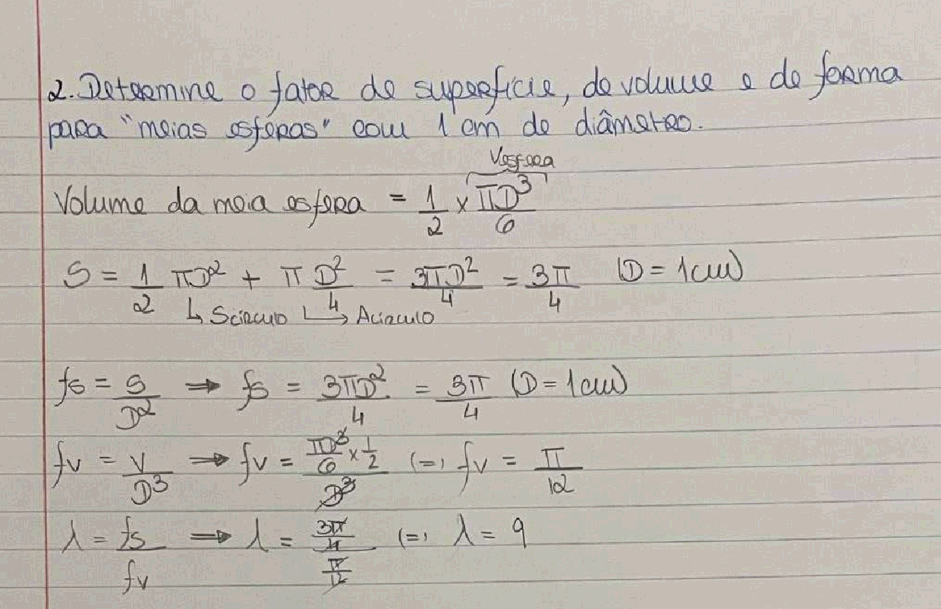 2. Determine o fator de superfície, de volume e de forma
para "meias esferas" com 1 cm de diâmetro.
Vesfera
Volume da meia esfera = 1/2 × πD³/6
S = 1/2 πD² + π D²/4 = 3πD²/4 = 3π/4 (D = 1cm)
↳ Scírculo ↳ Acírculo
fs = S/D² ⇒ fs = 3πD²/4 = 3π/4 (D = 1cm)
fv = V/D³ ⇒ fv = (πD³/6 × 1/2)/D³ (=) fv = π/12
λ = fs/fv ⇒ λ = (3π/4)/(π/12) (=) λ = 9